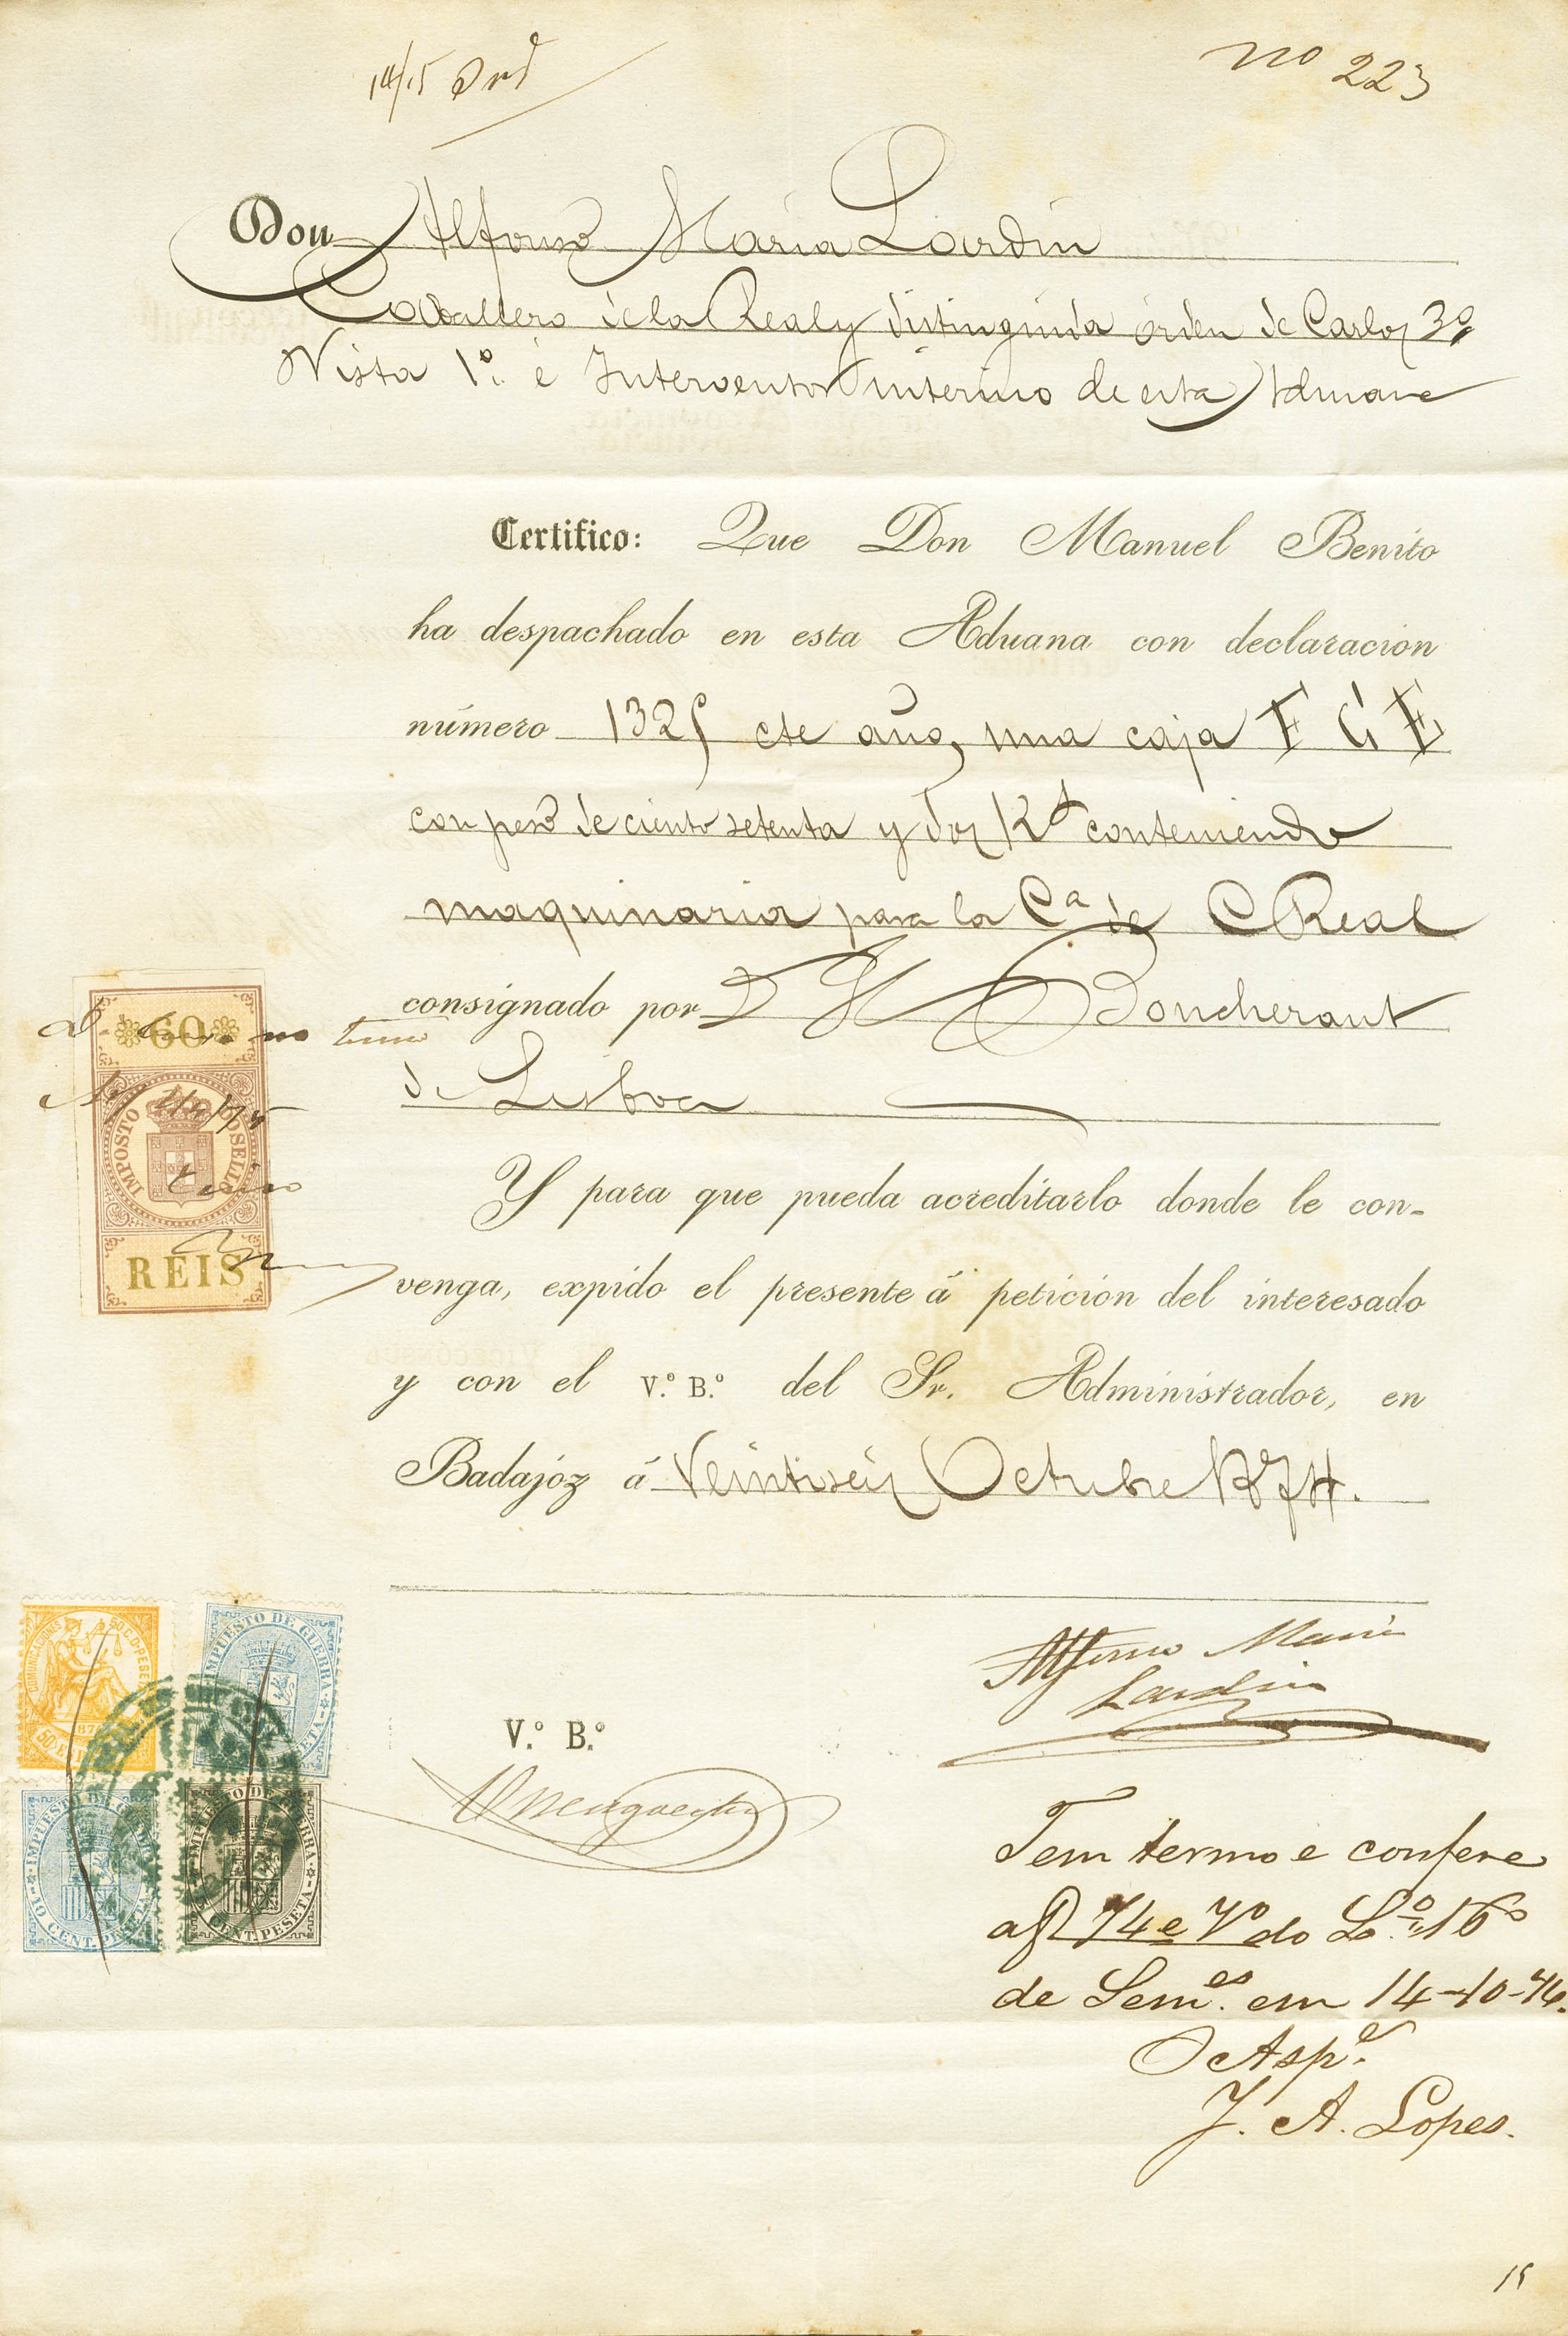 nº 223
Don Alfonso Maria Lardin
Caballero de la Real y distinguida órden de Carlos 3º,
Vista 1º é Interventor interino de esta Aduana
Certifico: Que Don Manuel Benito
ha despachado en esta Aduana con declaracion
número cte año, una caja F G E
con peso de ciento setenta y dos Kˢ conteniendo
maquinaria para la Cª de C Real
consignado por D H Boncherant
de Lisboa
Y para que pueda acreditarlo donde le con-
venga, expido el presente á peticion del interesado
y con el V.º B.º del Sr. Administrador, en
Badajóz á Veintiseis Octubre 1874.
60
IMPOSTO SELLO
REIS
COMUNICACIONES 50 C. D PESETA
IMPUESTO DE GUERRA
IMPUESTO DE GUERRA
10 CENT. PESETA
IMPUESTO DE GUERRA
CENT. PESETA
Alfonso Maria
Lardin
V.º B.º
Tem termo e confere
a fl 74 e Vº do Lº 16º
de Sem.es em 14-10-76.
O Asp.e
J. A. Lopes.
15